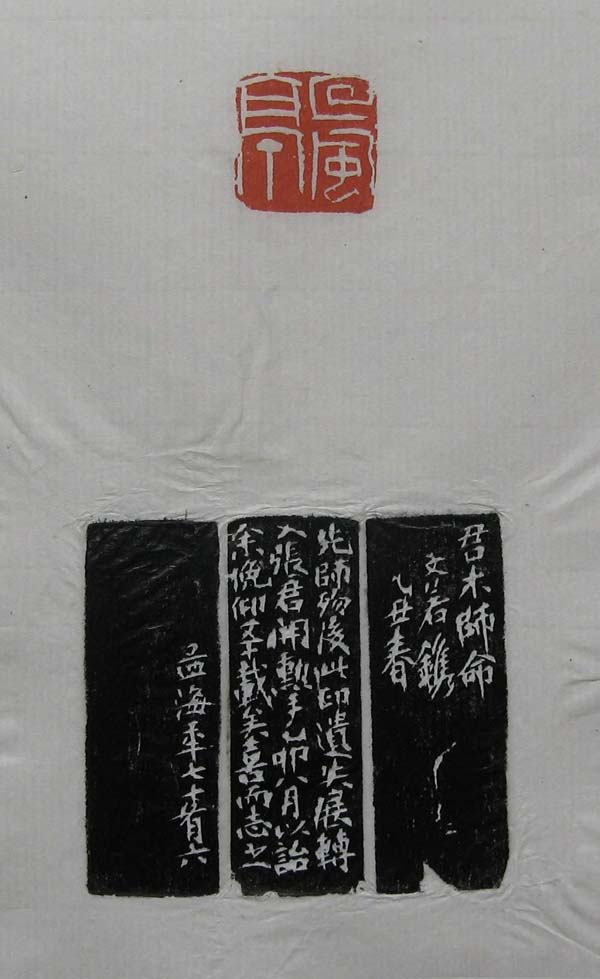 回風
君木師命
文若鐫
乙丑春
先師歿後此印遺失展轉
入張君開勳手乙卯八月以詒
余俛仰五十載矣喜而志之
孟海年七十有六